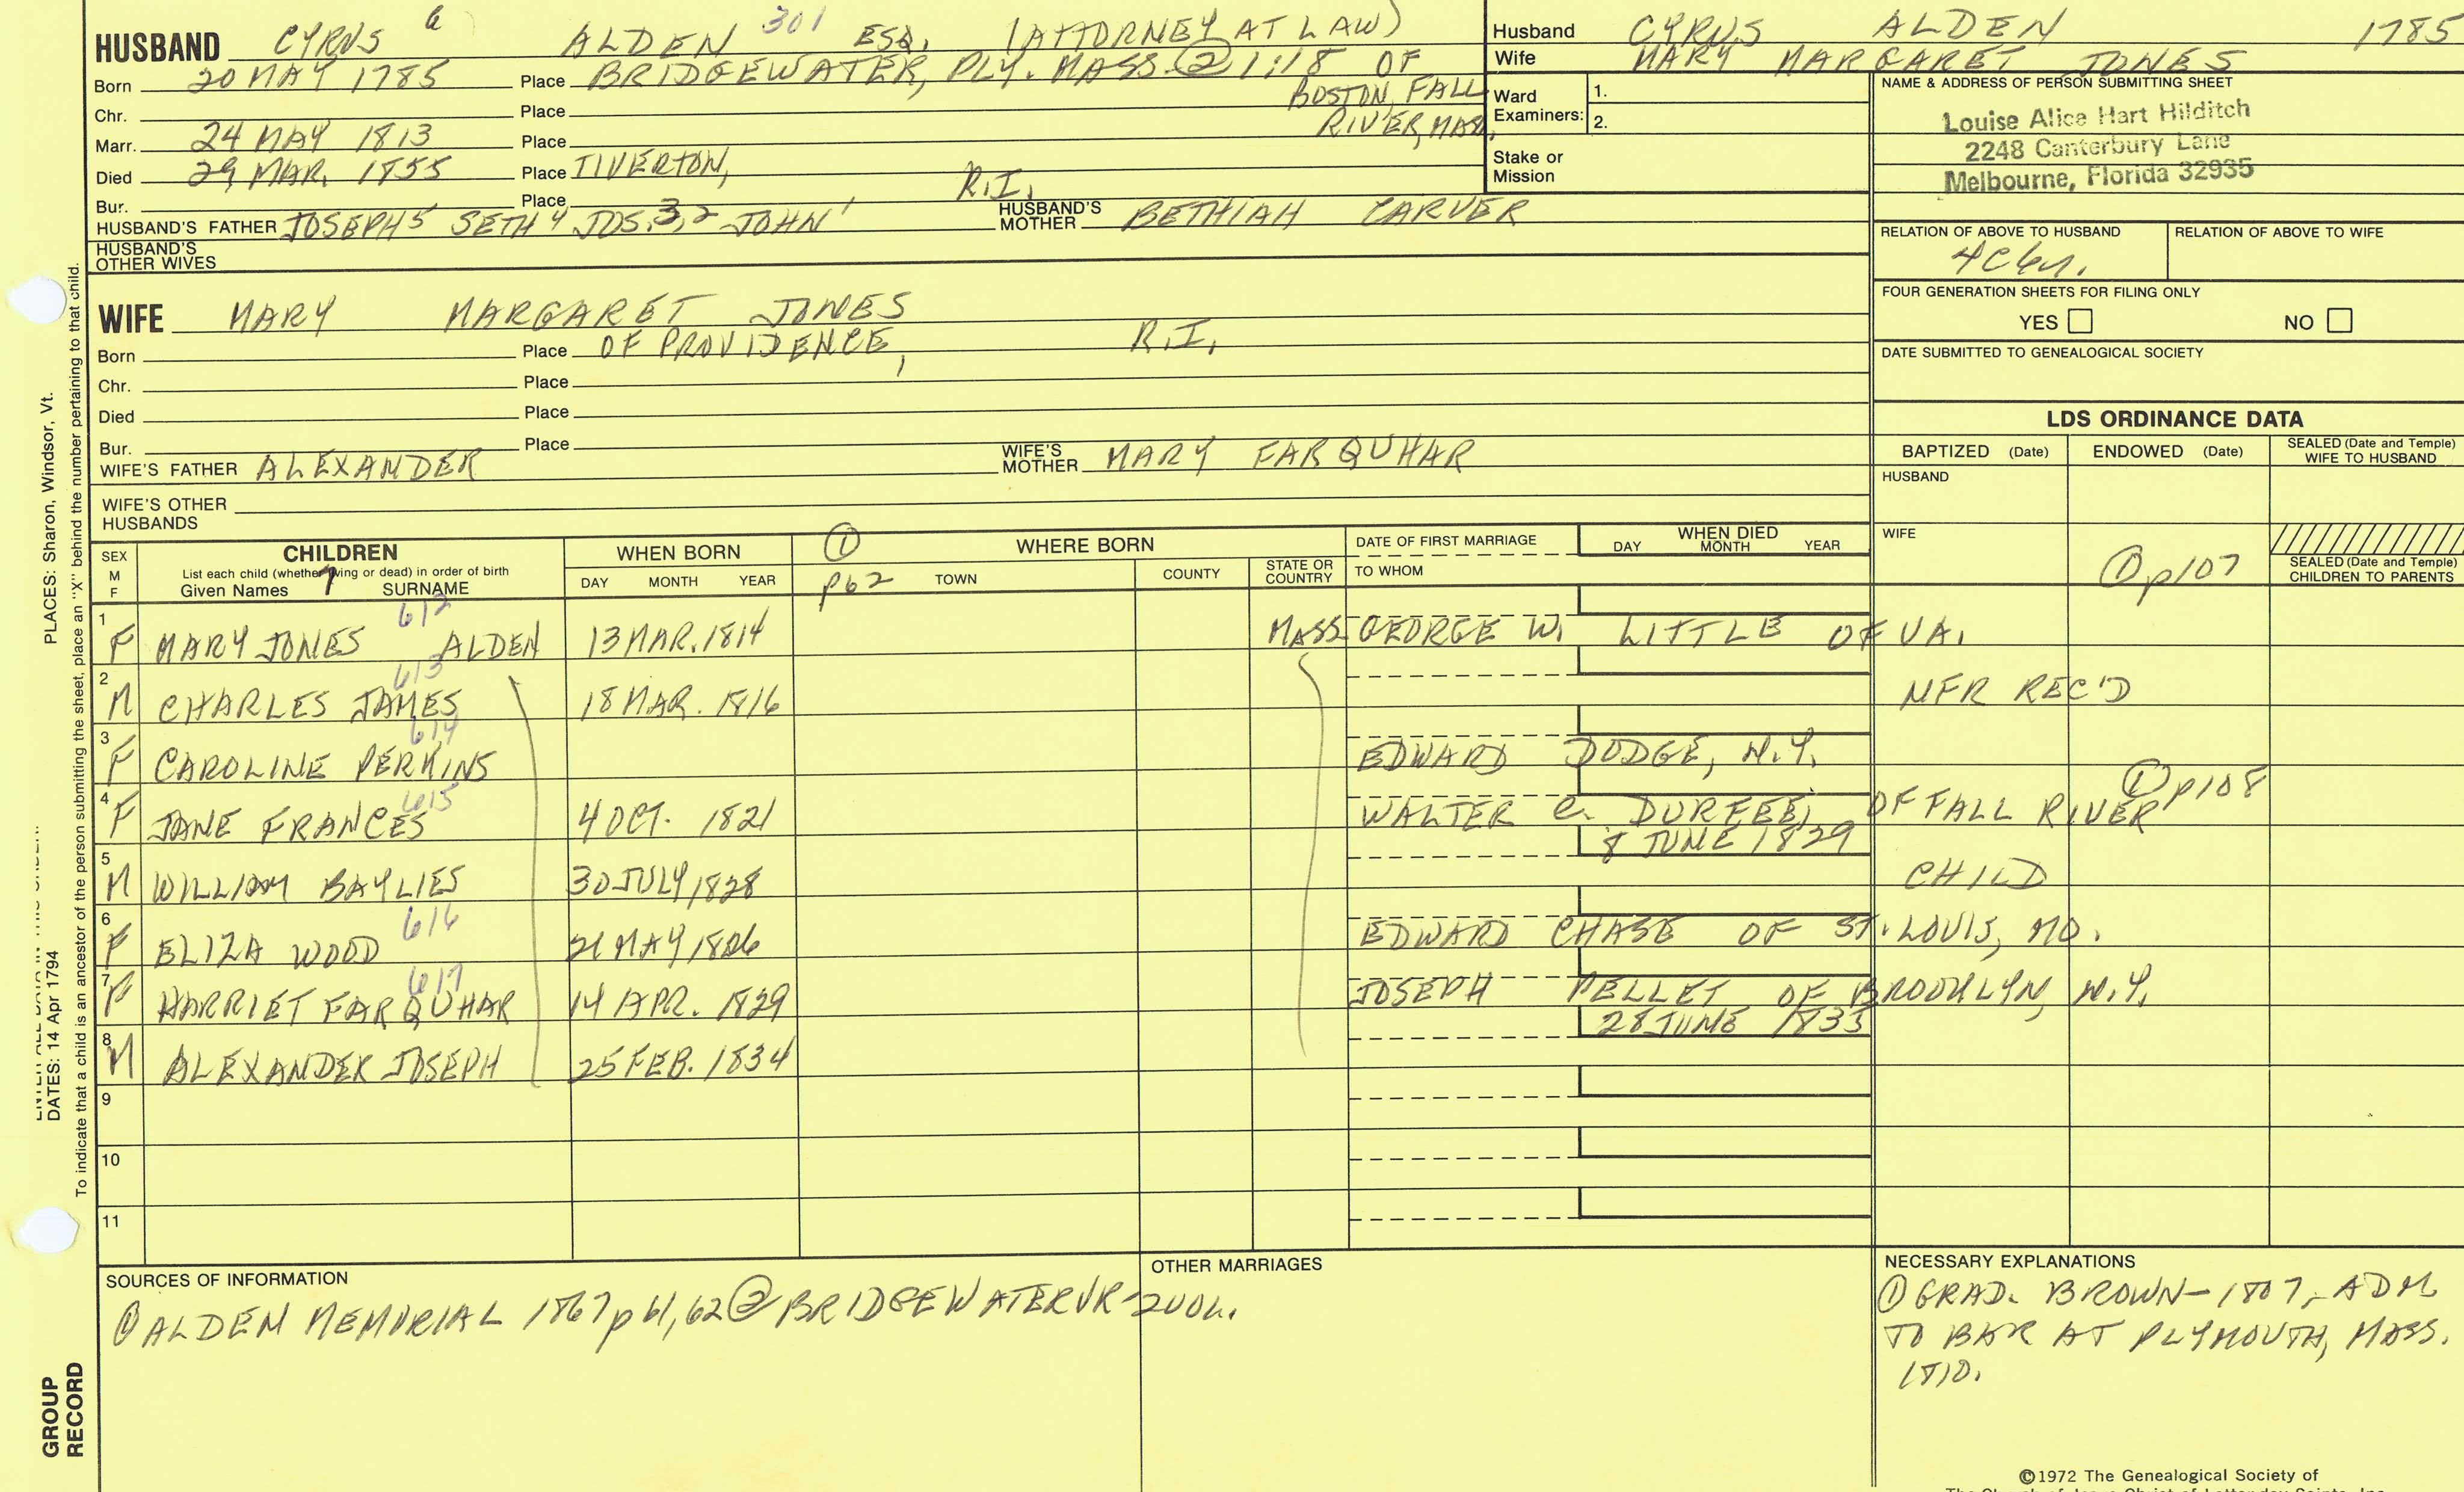 HUSBAND CYRUS 6 ALDEN 301 ESQ. (ATTORNEY AT LAW)
Born 20 MAY 1785 Place BRIDGEWATER, PLY. MASS. ② 1:18 OF
BOSTON, FALL
RIVER, MASS.
Chr. Place
Marr. 24 MAY 1813 Place
Died 29 MAR. 1855 Place TIVERTON, R.I.
Bur. Place
HUSBAND'S FATHER JOSEPH5 SETH4 JOS.3,2 JOHN1 HUSBAND'S MOTHER BETHIAH CARVER
HUSBAND'S
OTHER WIVES
Husband CYRUS ALDEN 1785
Wife MARY MARGARET JONES
Ward
Examiners: 1.
2.
Stake or
Mission
NAME & ADDRESS OF PERSON SUBMITTING SHEET
Louise Alice Hart Hilditch
2248 Canterbury Lane
Melbourne, Florida 32935
RELATION OF ABOVE TO HUSBAND RELATION OF ABOVE TO WIFE
4C6r.
FOUR GENERATION SHEETS FOR FILING ONLY
YES NO
DATE SUBMITTED TO GENEALOGICAL SOCIETY
WIFE MARY MARGARET JONES
Born Place OF PROVIDENCE, R.I.
Chr. Place
Died Place
Bur. Place
WIFE'S FATHER ALEXANDER WIFE'S MOTHER MARY FARQUHAR
WIFE'S OTHER
HUSBANDS
LDS ORDINANCE DATA
BAPTIZED (Date) ENDOWED (Date) SEALED (Date and Temple)
WIFE TO HUSBAND
HUSBAND
WIFE
① p107
SEALED (Date and Temple)
CHILDREN TO PARENTS
SEX
M
F
CHILDREN
List each child (whether living or dead) in order of birth
Given Names 7 SURNAME
WHEN BORN
DAY MONTH YEAR
① WHERE BORN
p62 TOWN COUNTY STATE OR
COUNTRY
DATE OF FIRST MARRIAGE
TO WHOM
WHEN DIED
DAY MONTH YEAR
612
1 F MARY JONES ALDEN 13 MAR. 1814 MASS GEORGE W. LITTLE OF VA.
613
2 M CHARLES JAMES 18 MAR. 1816 NFR REC'D
614
3 F CAROLINE PERKINS EDWARD DODGE, N.Y.
615
4 F JANE FRANCES 4 OCT. 1821 WALTER C. DURFEE, OF FALL RIVER ① p108
8 JUNE 1829
5 M WILLIAM BAYLIES 30 JULY 1828 CHILD
616
6 F ELIZA WOOD 21 MAY 1826 EDWARD CHASE OF ST. LOUIS, MO.
617
7 F HARRIET FARQUHAR 14 APR. 1829 JOSEPH PELLET OF BROOKLYN, N.Y.
28 JUNE 1835
8 M ALEXANDER JOSEPH 25 FEB. 1834
9
10
11
SOURCES OF INFORMATION
① ALDEN MEMORIAL 1867 p 61, 62 ② BRIDGEWATER VR-
OTHER MARRIAGES
NECESSARY EXPLANATIONS
① GRAD. BROWN-1807, ADM.
TO BAR AT PLYMOUTH, MASS.
1810.
©1972 The Genealogical Society of
The Church of Jesus Christ of Latter-day Saints, Inc.
PLACES: Sharon, Windsor, Vt.
DATES: 14 Apr 1794
To indicate that a child is an ancestor of the person submitting the sheet, place an "X" behind the number pertaining to that child.
GROUP
RECORD